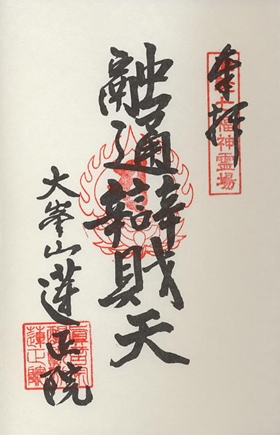 奉拝
七福神霊場
融通辯財天
大峯山蓮正院
蓮正院